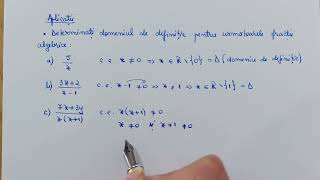 Aplicații
• Determinați domeniul de definiție pentru următoarele fracții
algebrice:
a) 5/x c.e. x ≠ 0 => x ∈ R \ {0} = D (domeniu de definiție)
b) 3x+2/x-1 c.e. x-1 ≠ 0 => x ≠ 1 => x ∈ R \ {1} = D
c) 7x+2y/x(x+1) c.e. x(x+1) ≠ 0
x ≠ 0 și x+1 ≠ 0